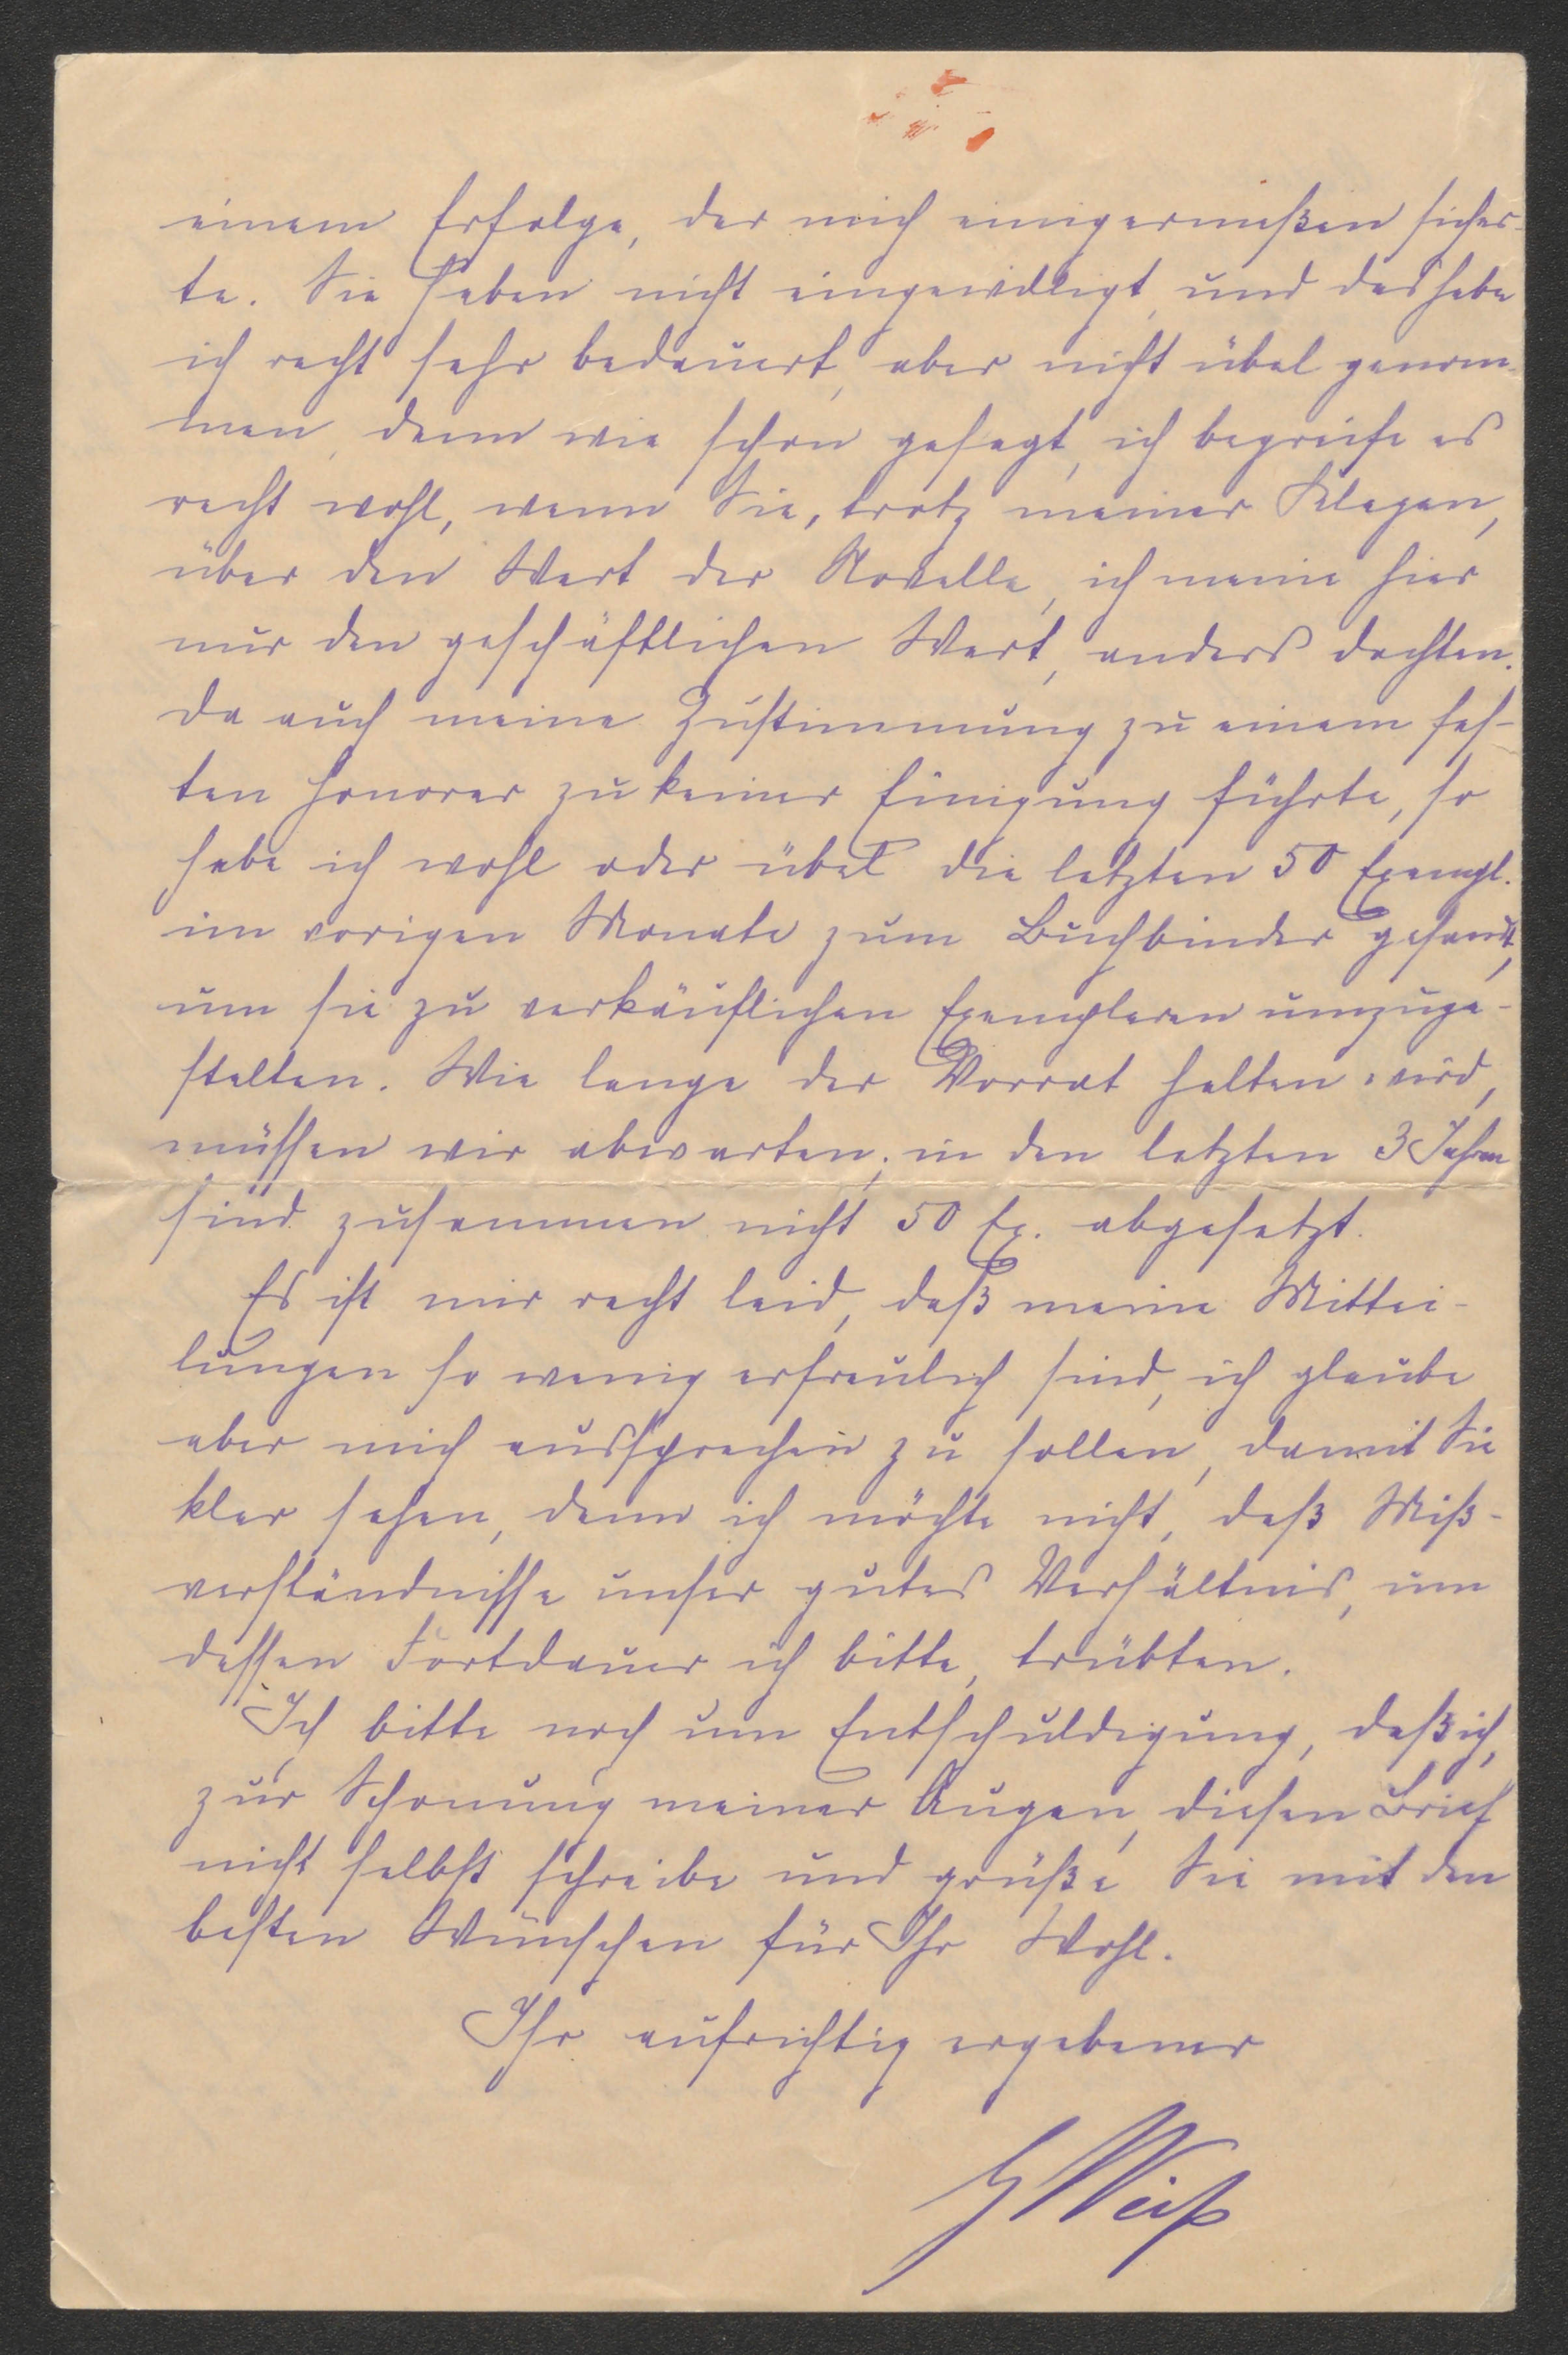 einem Erfolge, der mich einigermaßen sicher-
te. Sie haben nicht eingewilligt, und das habe
ich recht sehr bedauert, aber nicht übel genom-
men, denn wie schon gesagt, ich begreife es
recht wohl, wenn Sie, trotz meiner Klagen,
über den Wert der Novelle, ich meine hier
nur den geschäftlichen Wert, anders dachten.
Da auch meine Zustimmung zu einem fes-
ten Honorar zu keiner Einigung führte, so
habe ich wohl oder übel die letzten 50 Exempl.
im vorigen Monate zum Buchbinder gesandt,
um sie zu verkäuflichen Exemplaren umzuge-
stalten. Wie lange der Vorrat halten wird,
müssen wir abwarten; in den letzten 3 Jahren
sind zusammen nicht 50 Ex. abgesetzt.
Es ist mir recht leid, daß meine Mittei-
lungen so wenig erfreulich sind, ich glaube
aber mich aussprechen zu sollen, damit Sie
klar sehen, denn ich möchte nicht, daß Miß-
verständnisse unser gutes Verhältnis, um
dessen Fortdauer ich bitte, trübten.
Ich bitte noch um Entschuldigung, daß ich,
zur Schonung meiner Augen, diesen Brief
nicht selbst schreibe und grüße Sie mit den
besten Wünschen für Ihr Wohl.
Ihr aufrichtig ergebener
G Weiß